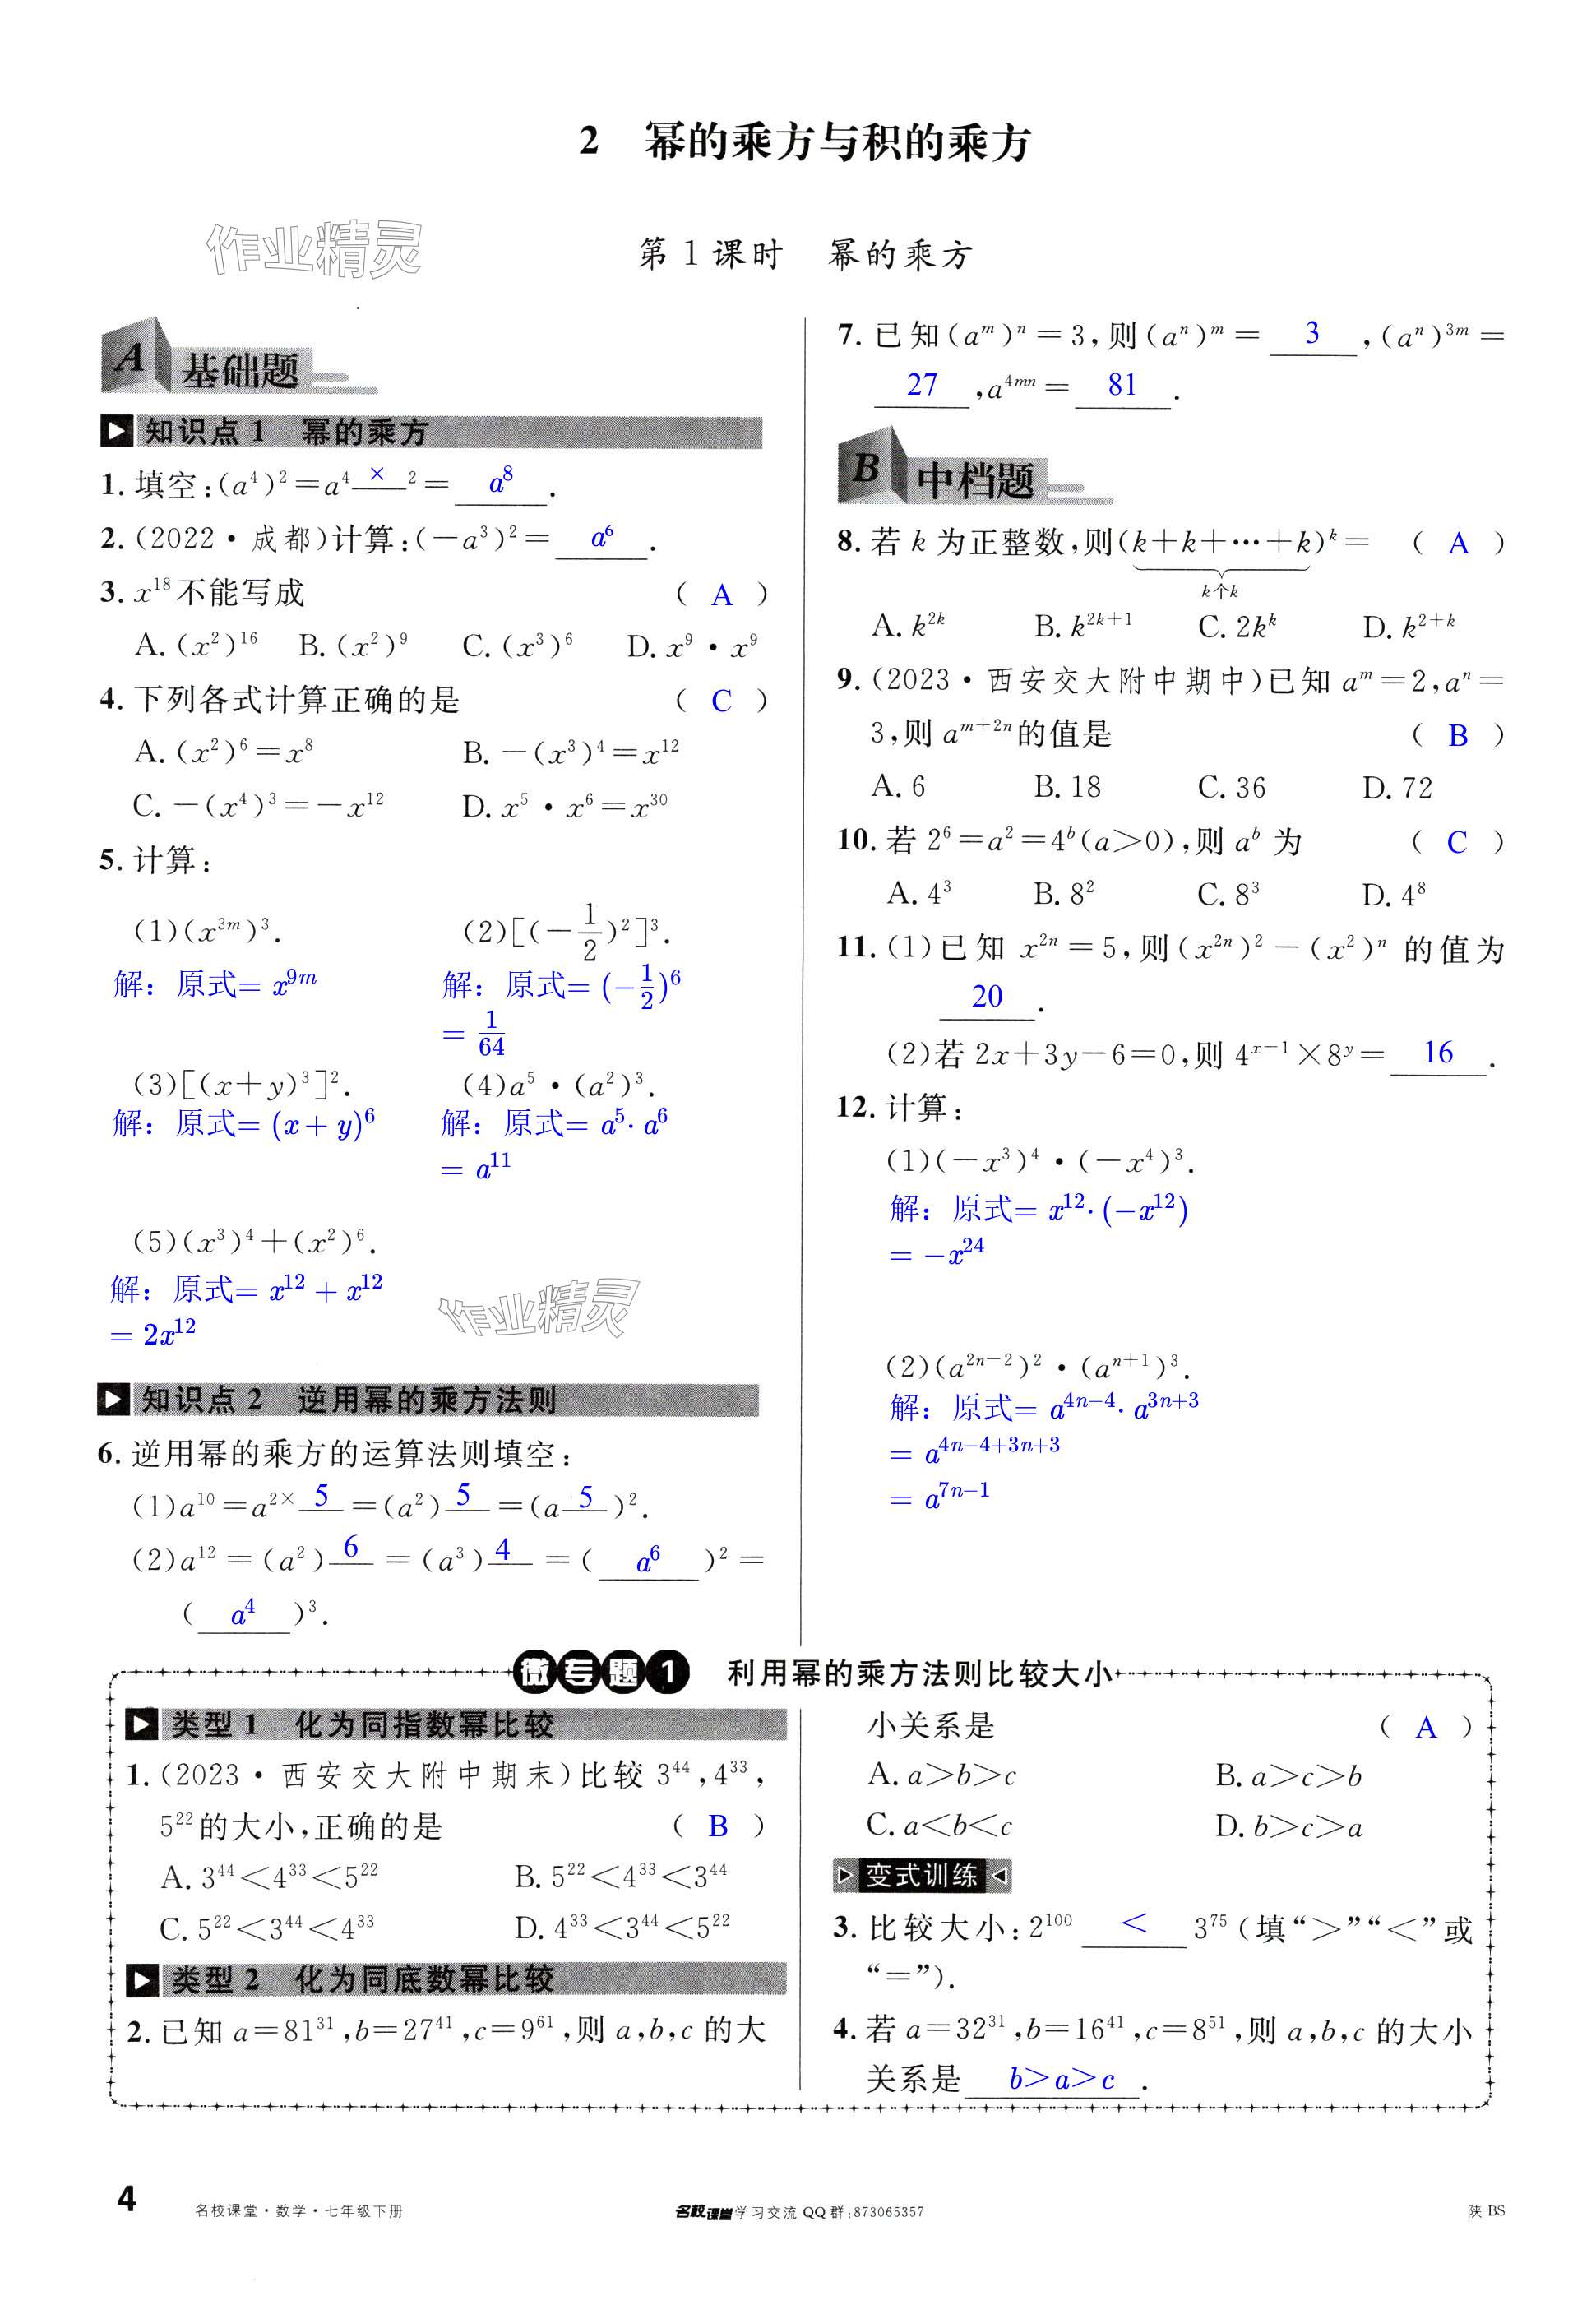 2 幂的乘方与积的乘方
作业精灵
第 1 课时 幂的乘方
A 基础题
知识点 1 幂的乘方
1. 填空:(a⁴)²=a⁴ × ²= a⁸ .
2. (2022·成都)计算:(-a³)²= a⁶ .
3. x¹⁸不能写成 ( A )
A. (x²)¹⁶ B. (x²)⁹ C. (x³)⁶ D. x⁹·x⁹
4. 下列各式计算正确的是 ( C )
A. (x²)⁶=x⁸ B. -(x³)⁴=x¹²
C. -(x⁴)³=-x¹² D. x⁵·x⁶=x³⁰
5. 计算:
(1)(x³ᵐ)³. (2)[(-1/2)²]³.
解: 原式= x⁹ᵐ 解: 原式= (-1/2)⁶
= 1/64
(3)[(x+y)³]². (4)a⁵·(a²)³.
解: 原式= (x+y)⁶ 解: 原式= a⁵·a⁶
= a¹¹
(5)(x³)⁴+(x²)⁶.
解: 原式= x¹²+x¹²
= 2x¹²
作业精灵
知识点 2 逆用幂的乘方法则
6. 逆用幂的乘方的运算法则填空:
(1)a¹⁰=a²ˣ 5 =(a²) 5 =(a 5 )².
(2)a¹²=(a²) 6 =(a³) 4 =( a⁶ )²=
( a⁴ )³.
7. 已知(aᵐ)ⁿ=3,则(aⁿ)ᵐ= 3 ,(aⁿ)³ᵐ=
27 ,a⁴ᵐⁿ= 81 .
B 中档题
8. 若 k 为正整数,则(k+k+…+k)ᵏ= ( A )
k个k
A. k²ᵏ B. k²ᵏ⁺¹ C. 2kᵏ D. k²⁺ᵏ
9. (2023·西安交大附中期中)已知 aᵐ=2,aⁿ=
3,则 aᵐ⁺²ⁿ的值是 ( B )
A. 6 B. 18 C. 36 D. 72
10. 若 2⁶=a²=4ᵇ(a>0),则 aᵇ 为 ( C )
A. 4³ B. 8² C. 8³ D. 4⁸
11. (1)已知 x²ⁿ=5,则(x²ⁿ)²-(x²)ⁿ 的值为
20 .
(2)若 2x+3y-6=0,则 4ˣ⁻¹×8ʸ= 16 .
12. 计算:
(1)(-x³)⁴·(-x⁴)³.
解: 原式= x¹²·(-x¹²)
= -x²⁴
(2)(a²ⁿ⁻²)²·(aⁿ⁺¹)³.
解: 原式= a⁴ⁿ⁻⁴·a³ⁿ⁺³
= a⁴ⁿ⁻⁴⁺³ⁿ⁺³
= a⁷ⁿ⁻¹
微专题1 利用幂的乘方法则比较大小
类型 1 化为同指数幂比较
1. (2023·西安交大附中期末)比较 3⁴⁴,4³³,
5²²的大小,正确的是 ( B )
A. 3⁴⁴<4³³<5²² B. 5²²<4³³<3⁴⁴
C. 5²²<3⁴⁴<4³³ D. 4³³<3⁴⁴<5²²
类型 2 化为同底数幂比较
2. 已知 a=81³¹,b=27⁴¹,c=9⁶¹,则 a,b,c 的大
小关系是 ( A )
A. a>b>c B. a>c>b
C. a<b<c D. b>c>a
变式训练
3. 比较大小:2¹⁰⁰ < 3⁷⁵(填“>”“<”或
“=”).
4. 若 a=32³¹,b=16⁴¹,c=8⁵¹,则 a,b,c 的大小
关系是 b>a>c .
4 名校课堂·数学·七年级下册 名校课堂学习交流 QQ 群:873065357 陕 BS